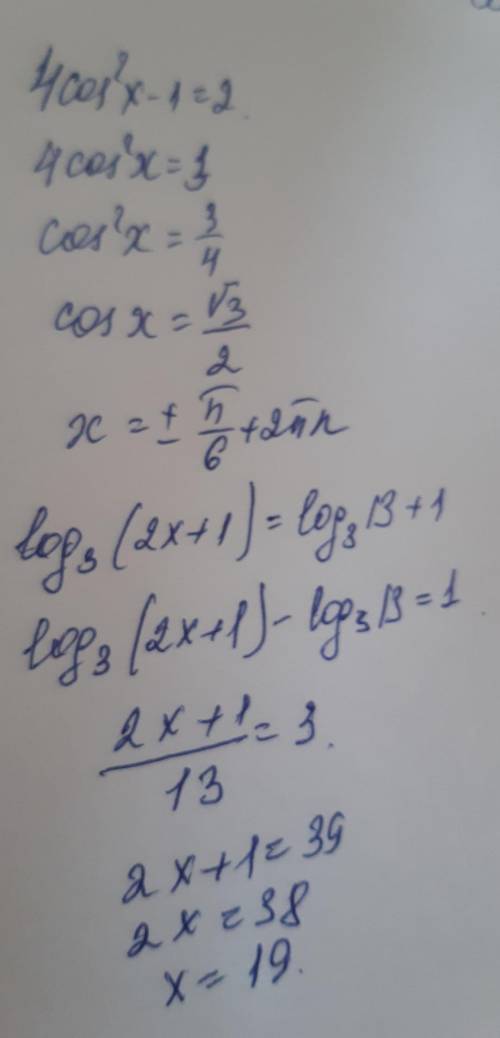 4cos²x-1=2
4cos²x=3
cos²x=3/4
cosx=√3/2
x=±π/6+2πn
log₃(2x+1)=log₃13+1
log₃(2x+1)-log₃13=1
2x+1/13=3.
2x+1=39
2x=38
x=19.